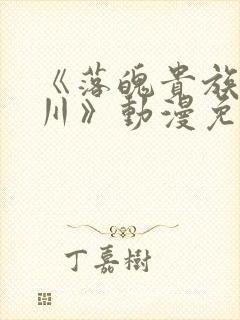 《落魄貴族
川》動漫免
丁嘉樹